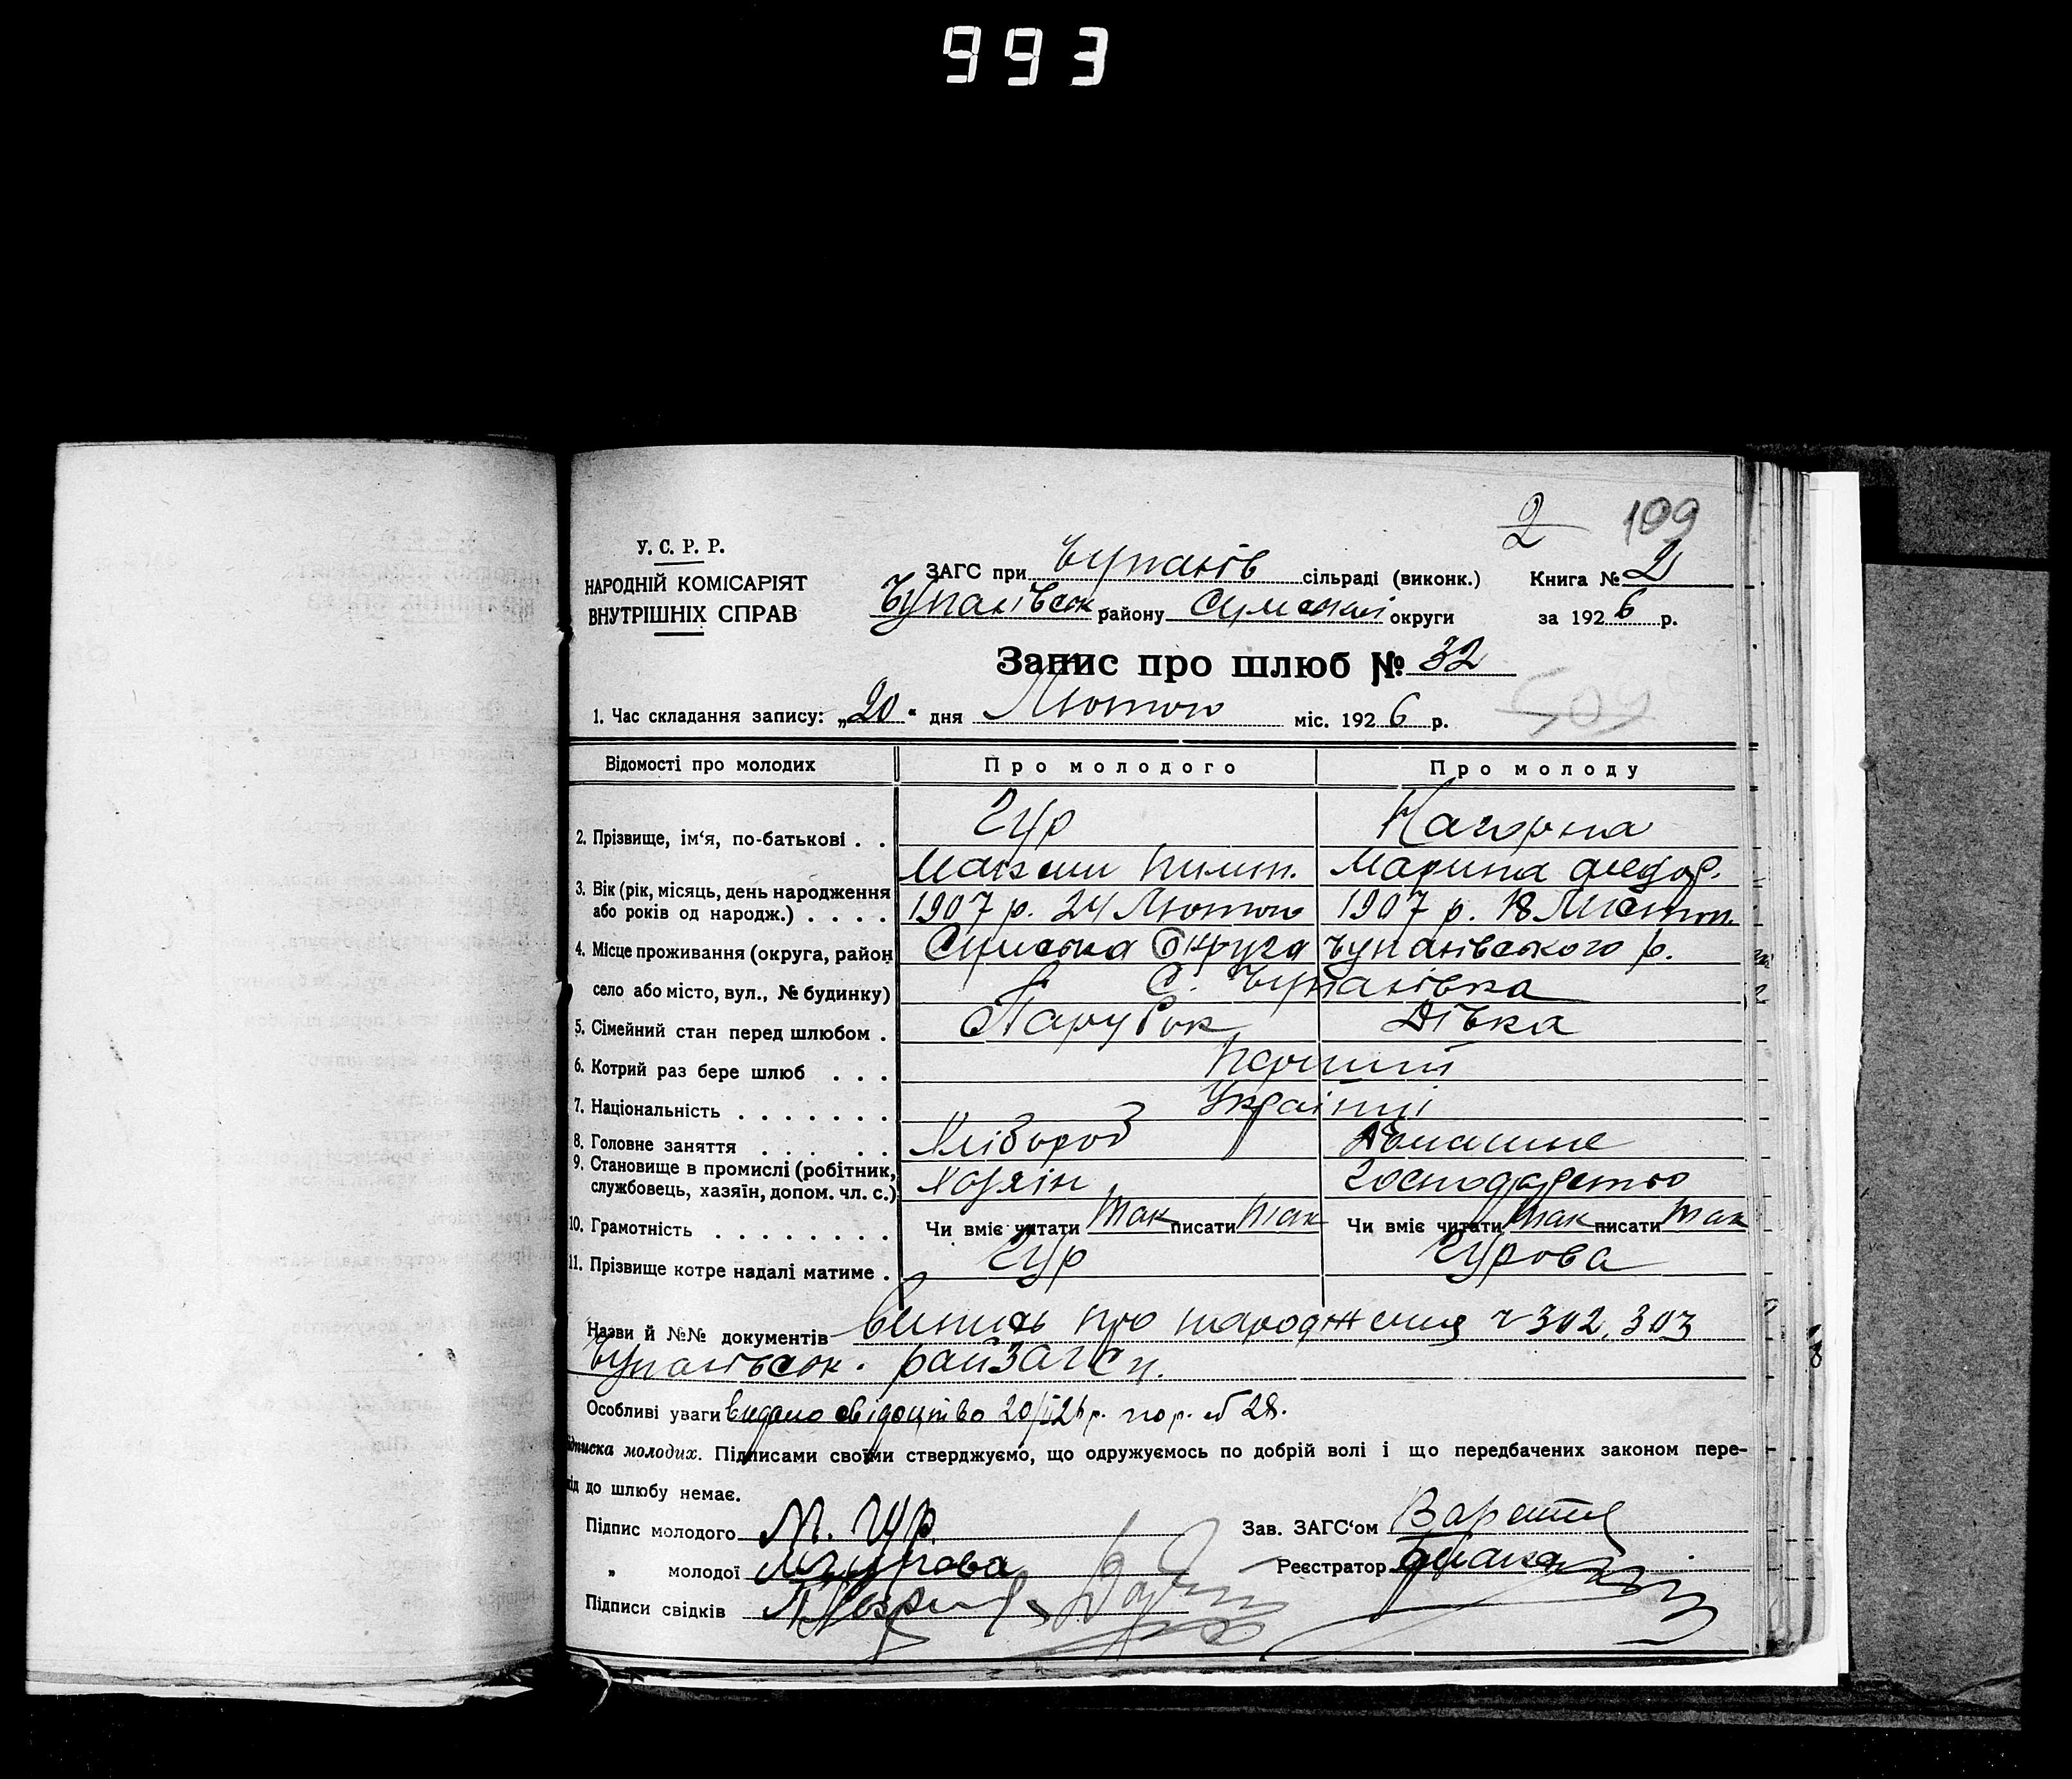 993
2 109
У. С. Р. Р.
НАРОДНІЙ КОМІСАРІЯТ
ВНУТРІШНІХ СПРАВ
ЗАГС при Чупахів сільраді (виконк.) Книга № 2
Чупахівськ району Сумської округи за 1926 р.
Запис про шлюб № 32
1. Час складання запису: „20" дня Лютого міс. 1926 р.
Відомості про молодих Про молодого Про молоду
2. Прізвище, ім'я, по-батькові . . Гур Нагорна
Максим Пилип. Марина Федор.
3. Вік (рік, місяць, день народження або років од народж.) . . . . 1907 р. 24 Лютого 1907 р. 18 Листоп.
4. Місце проживання (округа, район Сумська Округа Чупахівського р.
село або місто, вул., № будинку) С. Чупахівка
5. Сімейний стан перед шлюбом . Парубок Дівка
6. Котрий раз бере шлюб . . . Перший
7. Національність . . . . . . . Українці
8. Головне заняття . . . . . Хлібороб Домашне
9. Становище в промислі (робітник, службовець, хазяїн, допом. чл. с.) Хазяїн господарство
10. Грамотність . . . . . . . . Чи вміє читати так писати так Чи вміє читати так писати так
11. Прізвище котре надалі матиме . Гур Гурова
Назви й №№ документів Випись про народження ч 302, 303
Чупахівськ. райЗАГСу.
Особливі уваги видано свідоцтво 20/II 26 р. по р. № 28.
Підписка молодих. Підписами своїми стверджуємо, що одружуємось по добрій волі і що передбачених законом пере-
від до шлюбу немає.
Підпис молодого М. Гур Зав. ЗАГС'ом
„ молодої М Гурова Реєстратор
Підписи свідків